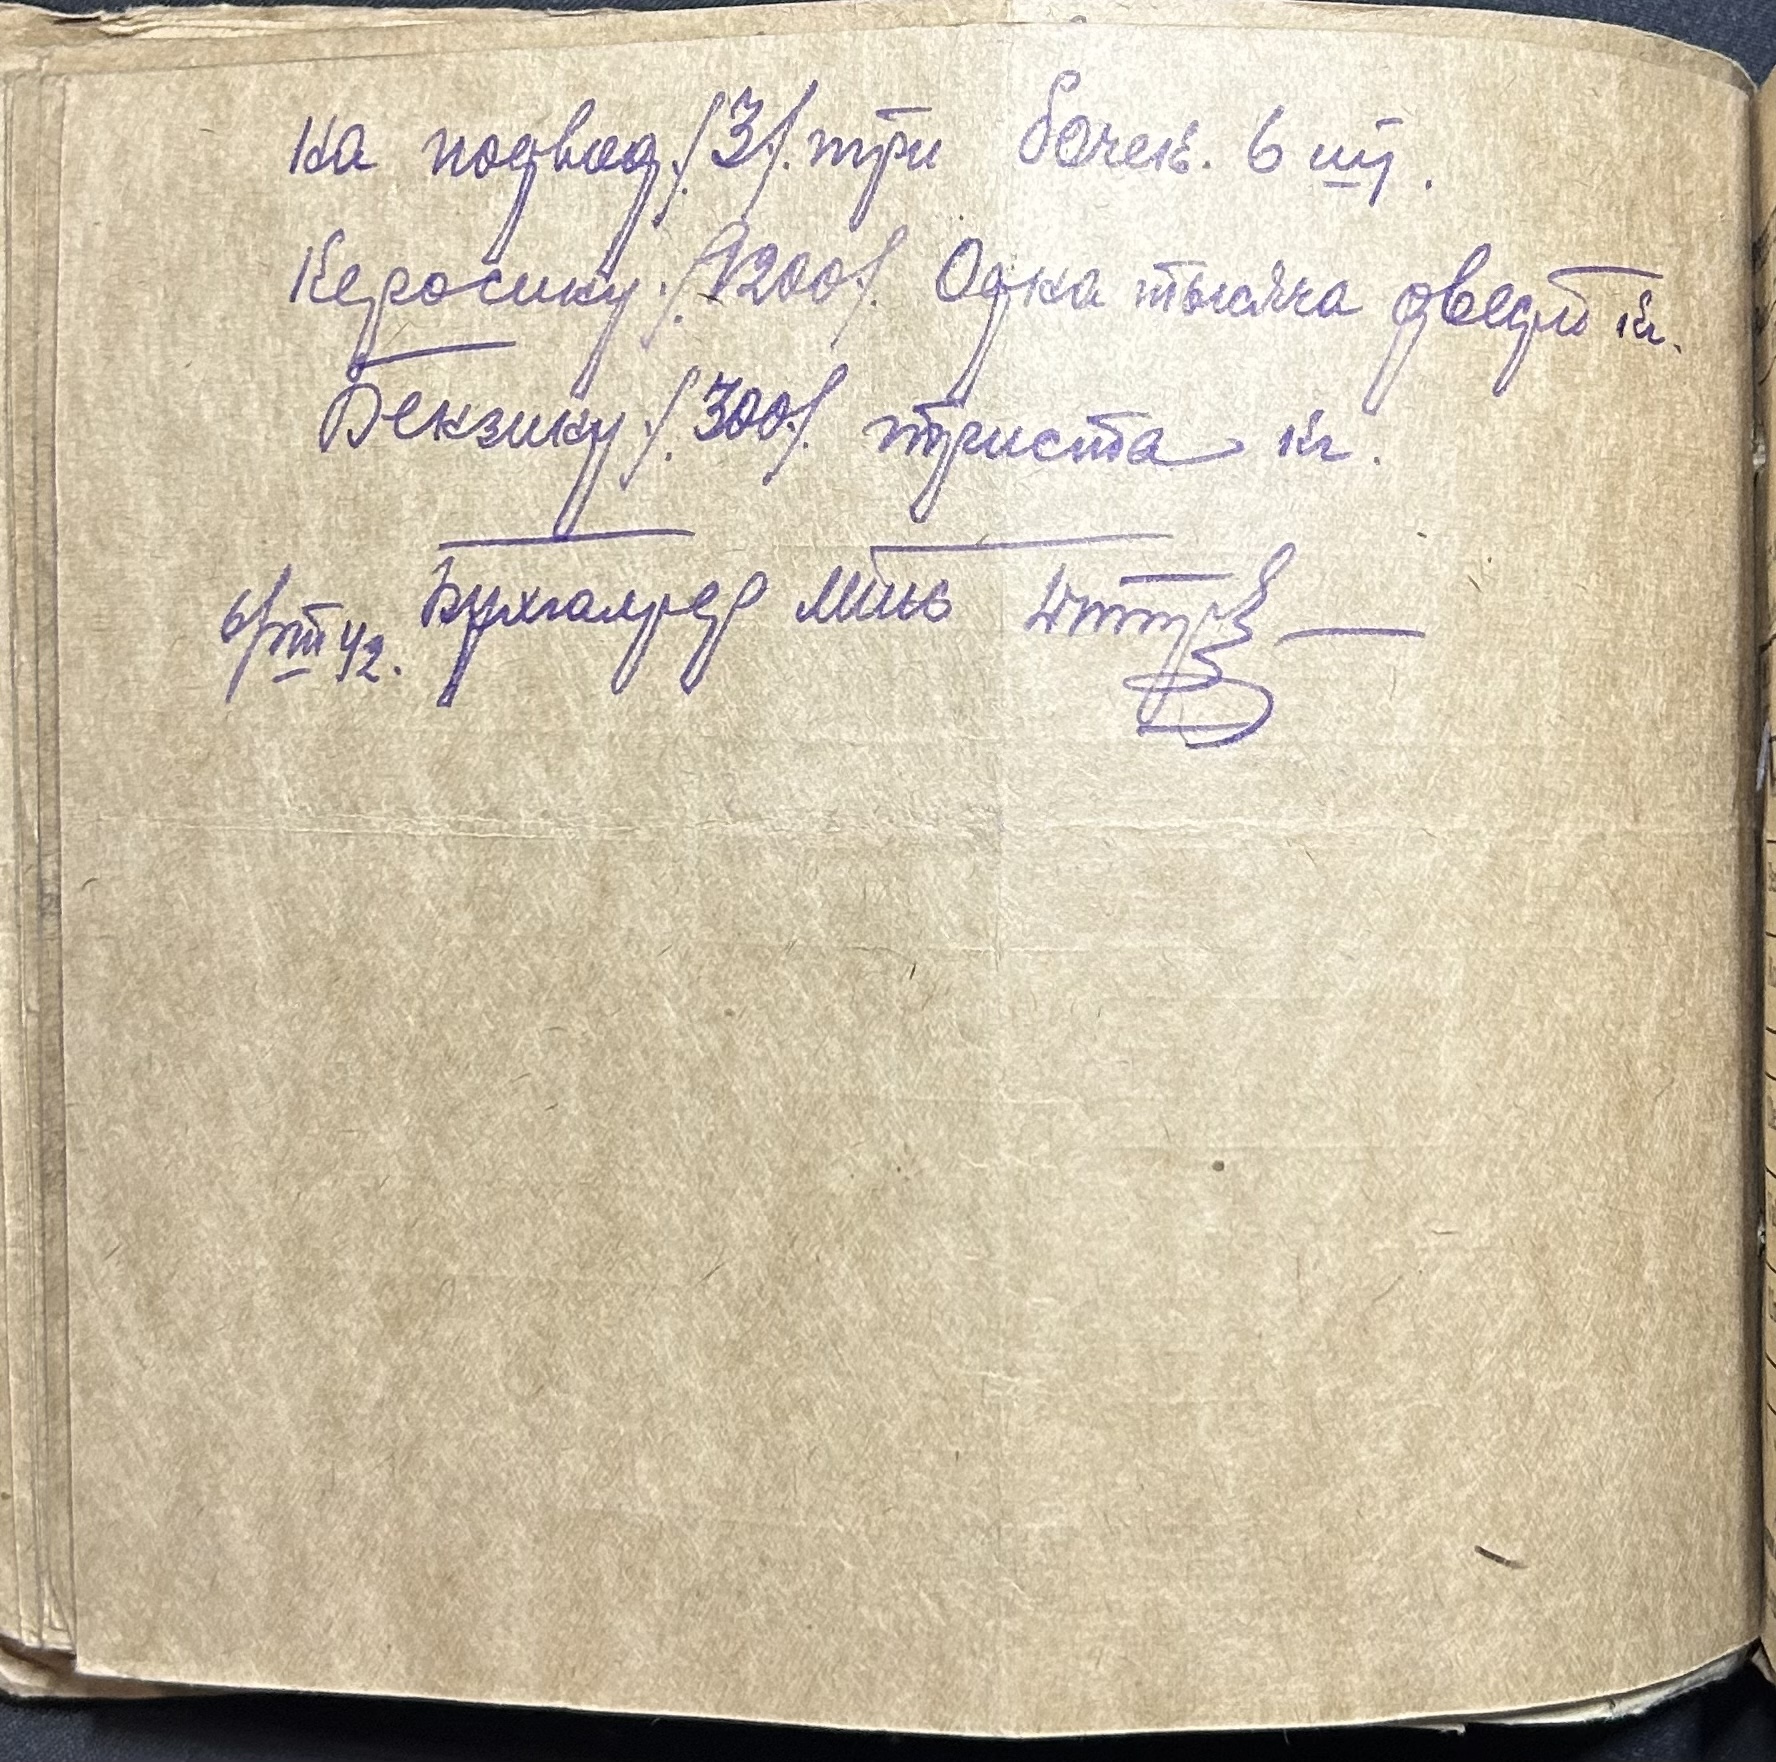 на подвод./.3./. три бочек. 6 шт.
Керосину ./.1200./. Одна тысяча двести кг.
Бензину ./.300./. триста кг.
6/III 42. Бухгалтер